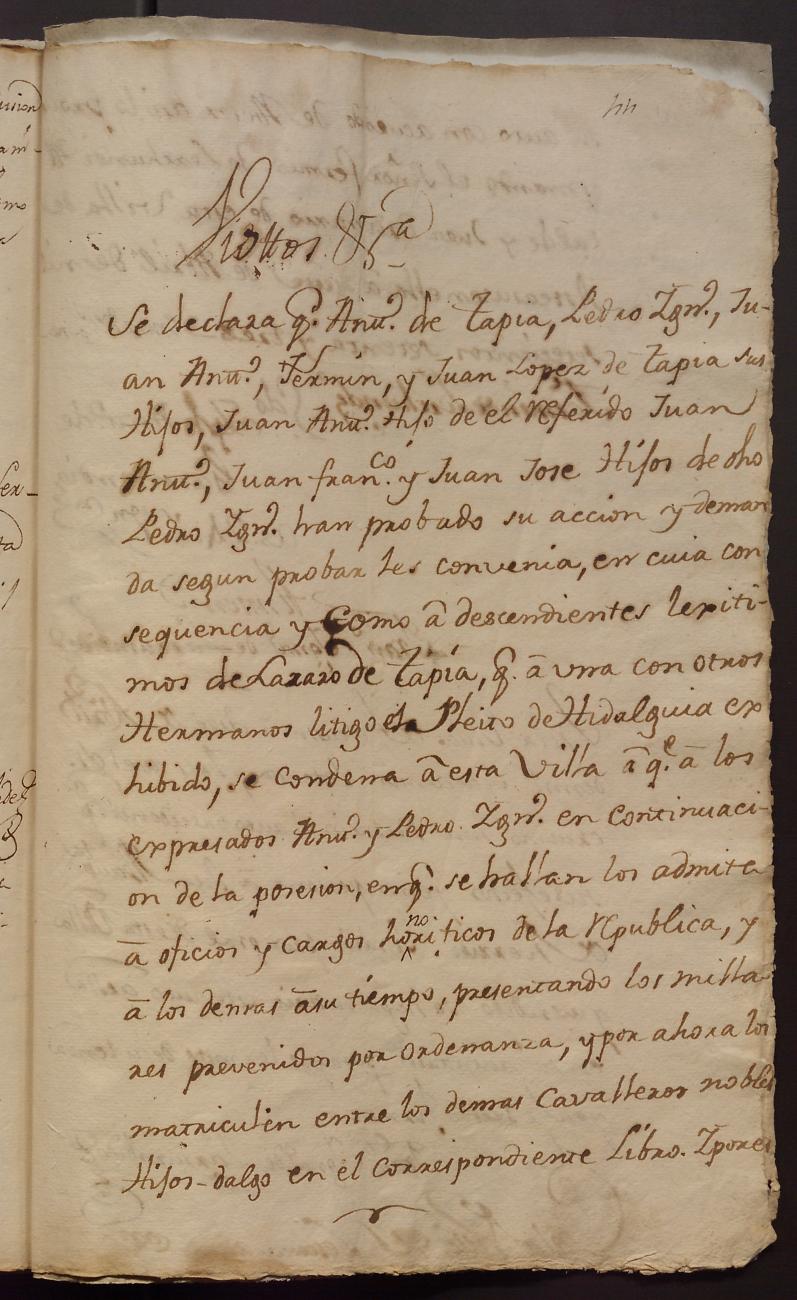 44
Visttos &ª
Se declara q.ᵉ Anttº. de Tapia, Pedro Ygnº., Ju-
an Anttº., Fermin, y Juan Lopez de Tapia sus
Hijos, Juan Anttº. Hijo de el Referido Juan
Anttº., Juan franᶜᵒ. y Juan Jose Hijos de dho
Pedro Ygnº. han probado su accion y deman
da segun probar les convenia, en cuia con
sequencia y Como â descendientes lexiti-
mos de Lazaro de Tapia, q.ᵉ â vna con otros
Hermanos litigo el Pleito de Hidalguia ex
hibido, se Condena â esta Villa â q.ᵉ â los
expresados Anttº. y Pedro Ygnº. en continuaci-
on de la posesion, en q.ᵉ se hallan los admita
â oficios y cargos honoriticos de la Republica, y
â los demas âsu tiempo, presentando los milla-
res prevenidos por ordenanza, y por ahora los
matriculen entre los demas Cavalleros nobles
Hijos-dalgo en el correspondiente Libro. Y por es